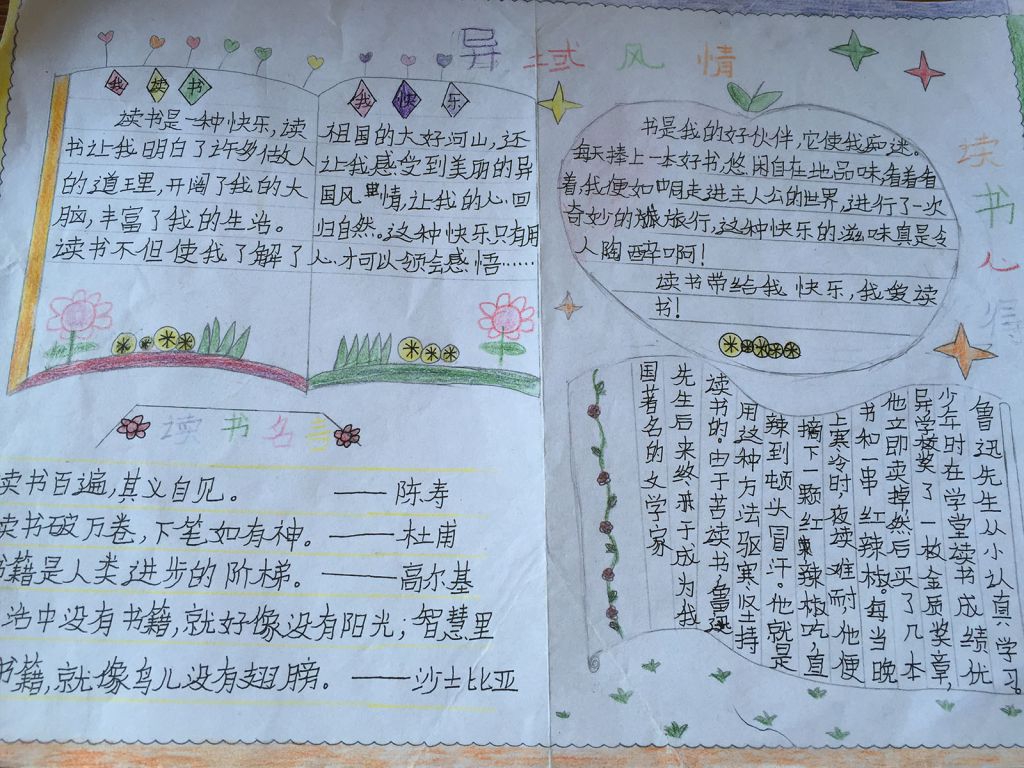 异域风情
我读书
读书是一种快乐,读
书让我明白了许多做人
的道理,开阔了我的大
脑,丰富了我的生活。
读书不但使我了解了
我快乐
祖国的大好河山,还
让我感受到美丽的异
国风情,让我的心回
归自然。这种快乐只有用
心才可以领会感悟……
读书名言
读书百遍,其义自见。——陈寿
读书破万卷,下笔如有神。——杜甫
书籍是人类进步的阶梯。——高尔基
活中没有书籍,就好像没有阳光;智慧里
书籍,就像鸟儿没有翅膀。——沙士比亚
读书心得
书是我的好伙伴,它使我痴迷。
每天捧上一本好书,悠闲自在地品味,看着看
着,我便如同走进主人公的世界,进行了一次
奇妙的旅行,这种快乐的滋味真是令
人陶醉啊!
读书带给我快乐,我爱读
书!
鲁迅先生从小认真学习。
少年时在学堂读书成绩优
异,学校奖了一枚金质奖章,
他立即卖掉,然后买了几本
书和一串红辣椒。每当晚
上寒冷时,夜读难耐,他便
摘下一颗红辣椒吃,直
辣到顿头冒汗。他就是
用这种方法驱寒坚持
读书的。由于苦读书,鲁迅
先生后来终于成为我
国著名的文学家